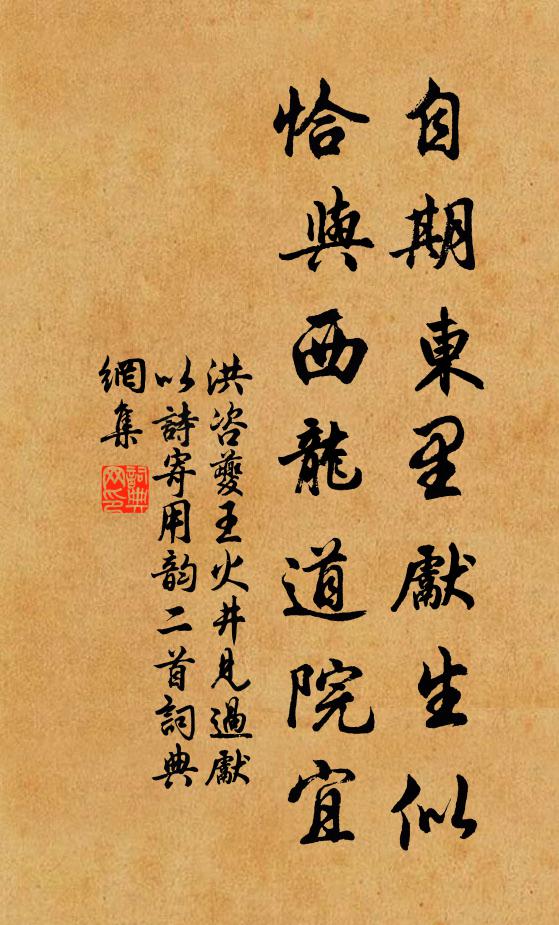 自期東里獻生似
恰與西龍道院宜
洪咨夔王火井見過獻
以詩寄用韵二首詞典
網集
詞典
网印